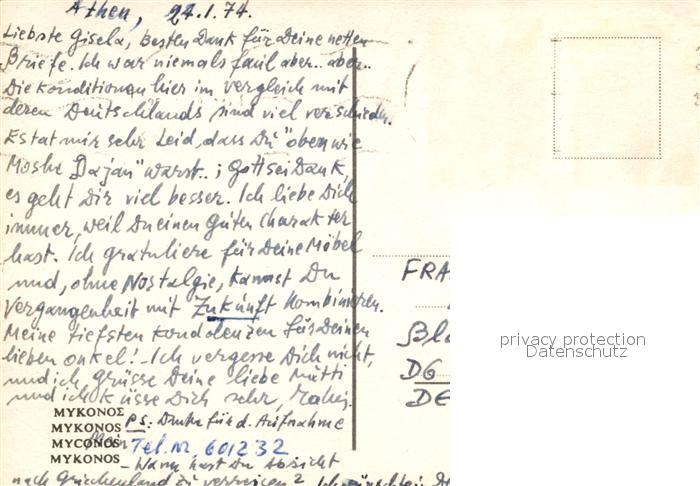 Athen, 22.1.74.
Liebste Gisela, besten Dank für Deine netten
Briefe. Ich war niemals faul aber.. aber..
Die Konditionen hier im vergleich mit
deren Deutschlands sind viel verschieden.
Es tat mir sehr Leid, dass Du "oben wie
Moshe Dajan" warst..; Gott sei Dank,
es geht Dir viel besser. Ich liebe Dich
immer, weil Du einen Guten Charakter
hast. Ich gratuliere für Deine Möbel
und, ohne Nostalgie, kannst Du
Vergangenheit mit Zukunft Kombinieren.
Meine tiefsten Kondolenzen für Deinen
lieben onkel! Ich vergesse Dich nicht,
und ich Grüsse Deine liebe Mutti
und ich Küsse Dich sehr,
ΜΥΚΟΝΟΣ
MYKONOS
MYCONOS
MYKONOS
PS: Danke für d. Aufnahme
Mein Tel. Nr. 601232
- Wann hast Du Absicht
nach Griechenland zu verreisen? Ich
FRA
Bl
DG
DE
privacy protection
Datenschutz